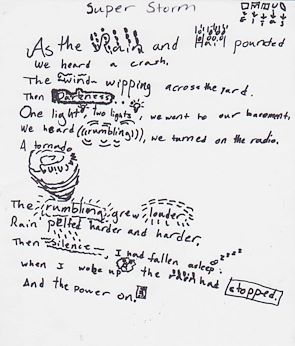 Super Storm
As the Rain and Hail pounded
We heard a crash.
The wind wipping across the yard.
Then Darkness...
One light, two lights, we went to our basement,
We heard (((rumbling))), we turned on the radio.
A tornado
The rumbling grew louder
Rain pelted harder and harder.
Then silence, I had fallen asleep. zzzzz
when I woke up the rain had stopped.
And the power on.